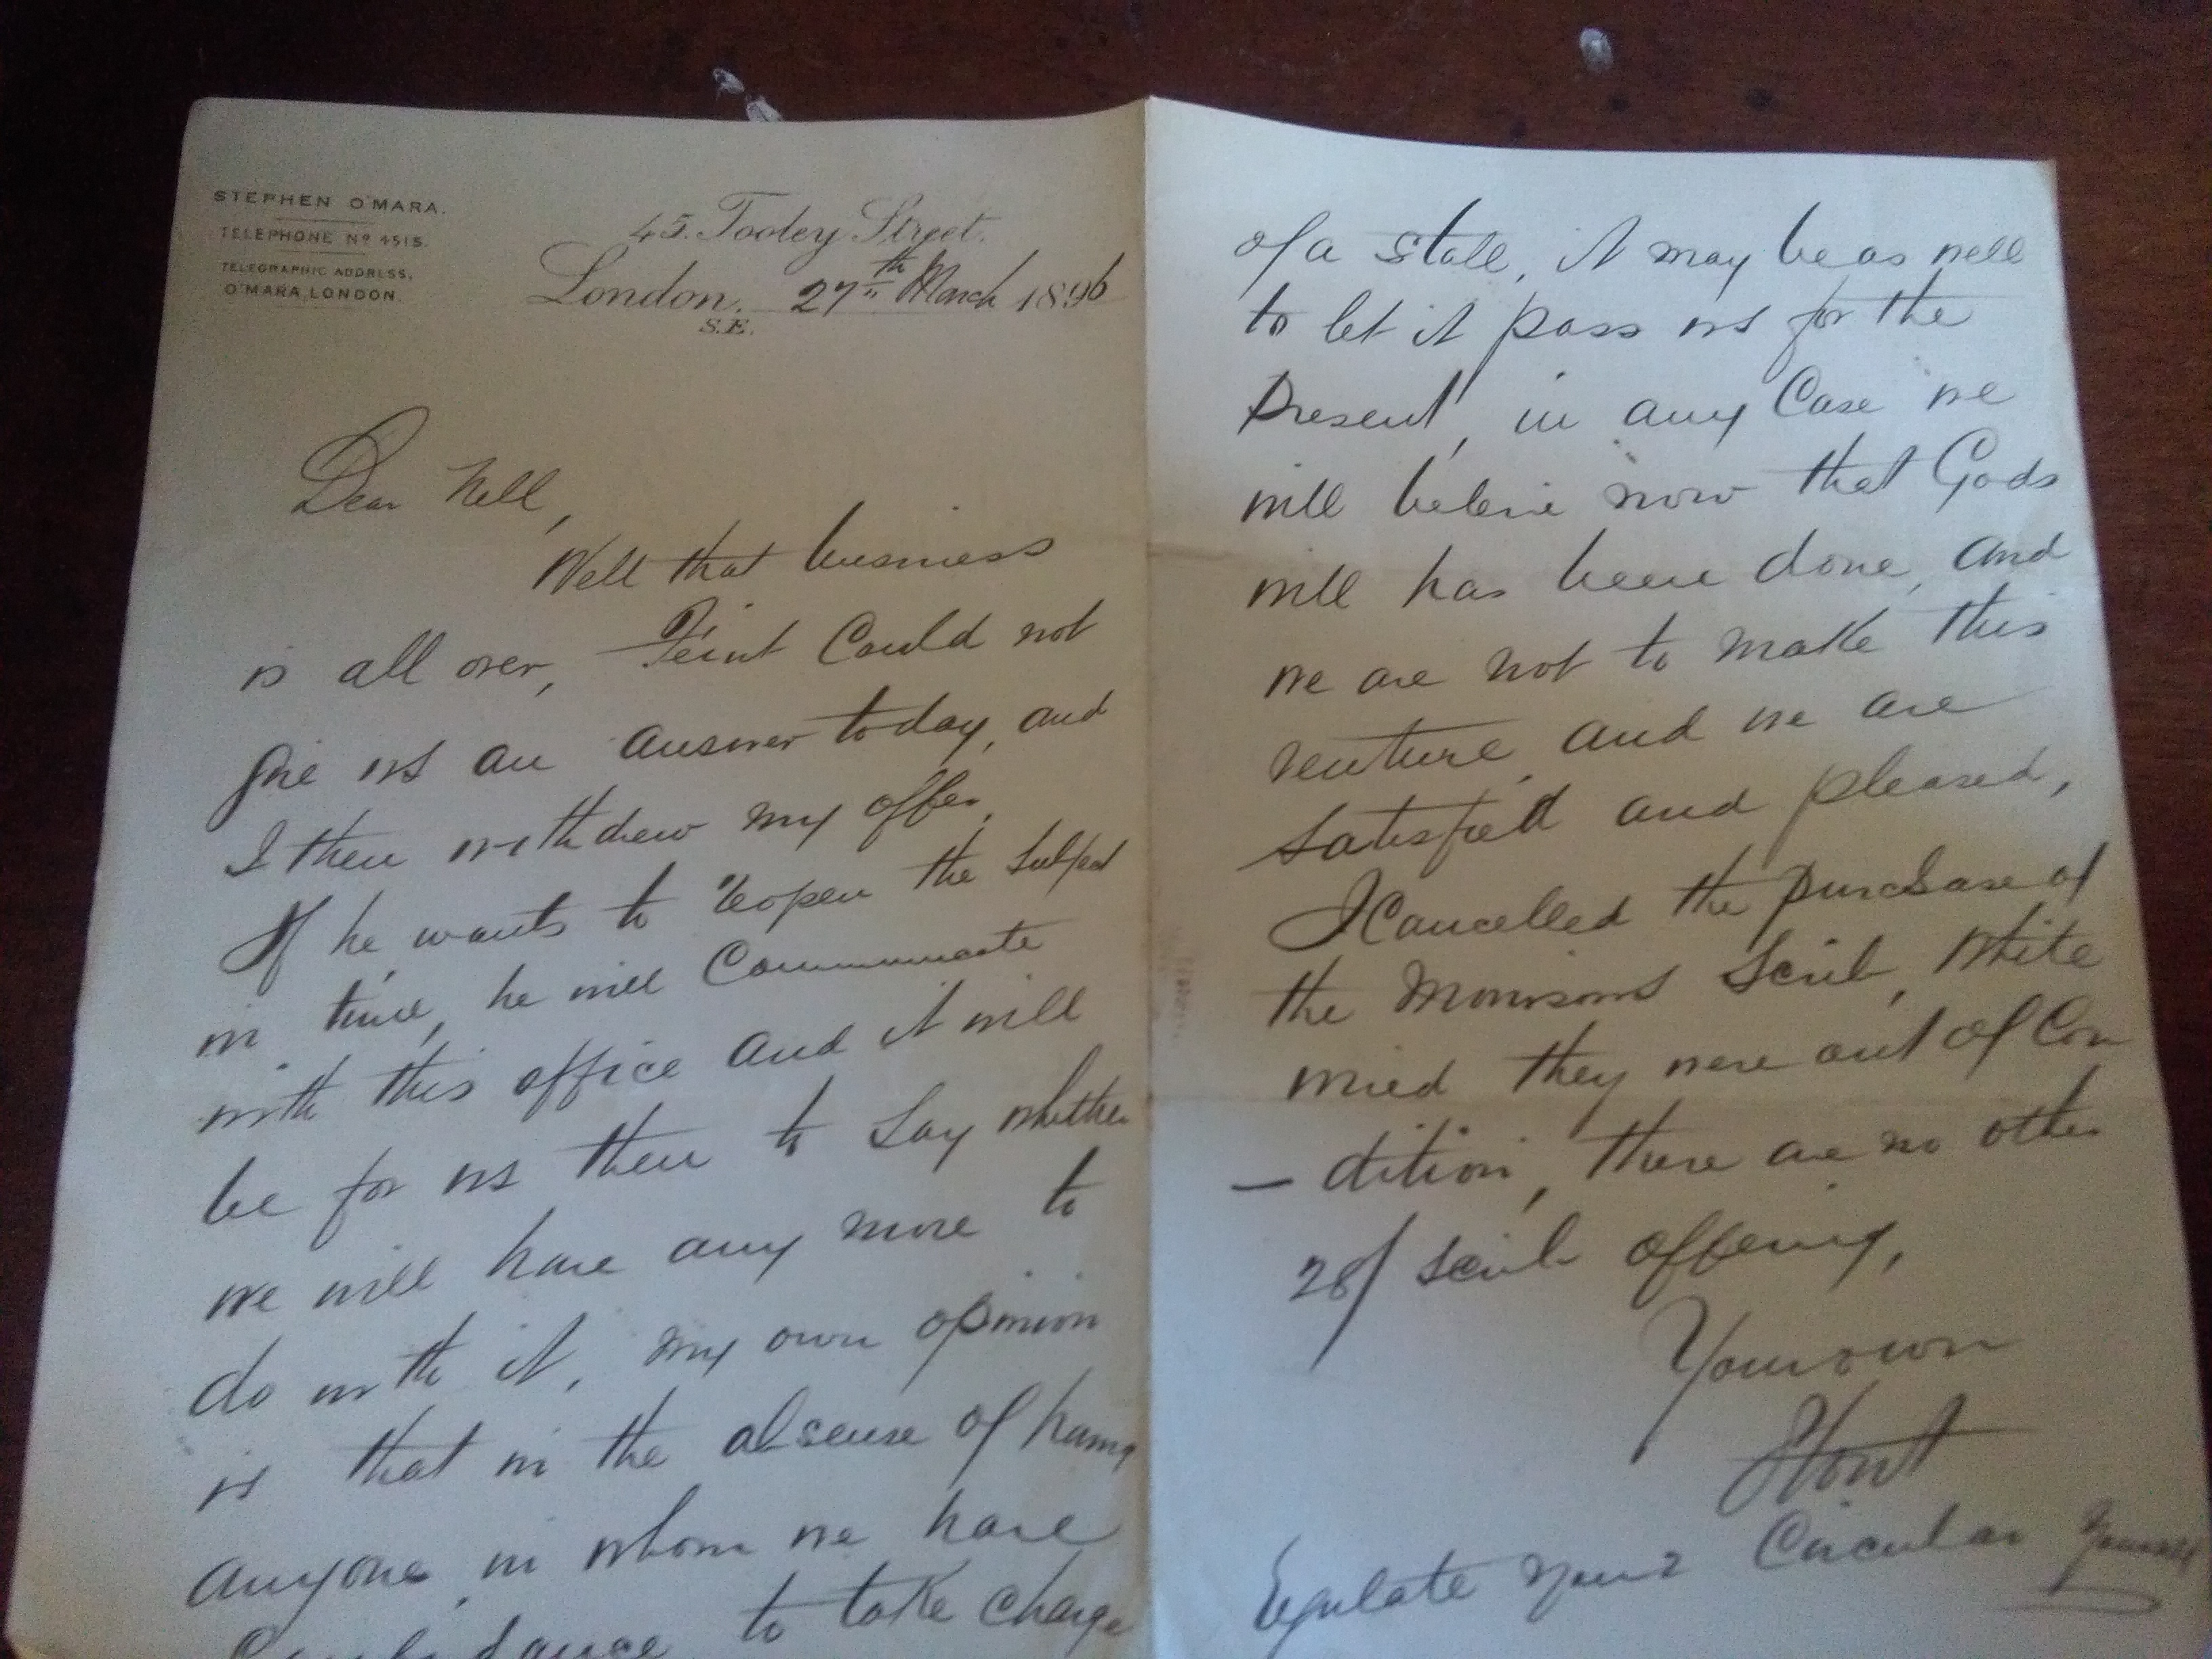 STEPHEN O'MARA.
TELEPHONE No 4515.
TELEGRAPHIC ADDRESS,
O'MARA, LONDON.
45. Tooley Street.
London, 27th March 1896
S.E.
Dear Nell,
Well that business
is all over, could not
give us an answer today, and
I then withdrew my offer,
If he wants to reopen the subject
in time, he will Communicate
with this office and it will
be for us then to say whether
we will have any more to
do with it, my own opinion
is that in the absense of having
anyone in whom we have
to take charge
of a stall, it may be as well
to let it pass us for the
Present, in any Case we
will beleive now that Gods
will has been done, and
we are not to make this
venture, and we are
satisfied and pleased,
I Cancelled the purchase of
the Scrib, White
wired they were out of Con
- dition, there are no other
28/ scrib offering,
Your own
your Circular yourself